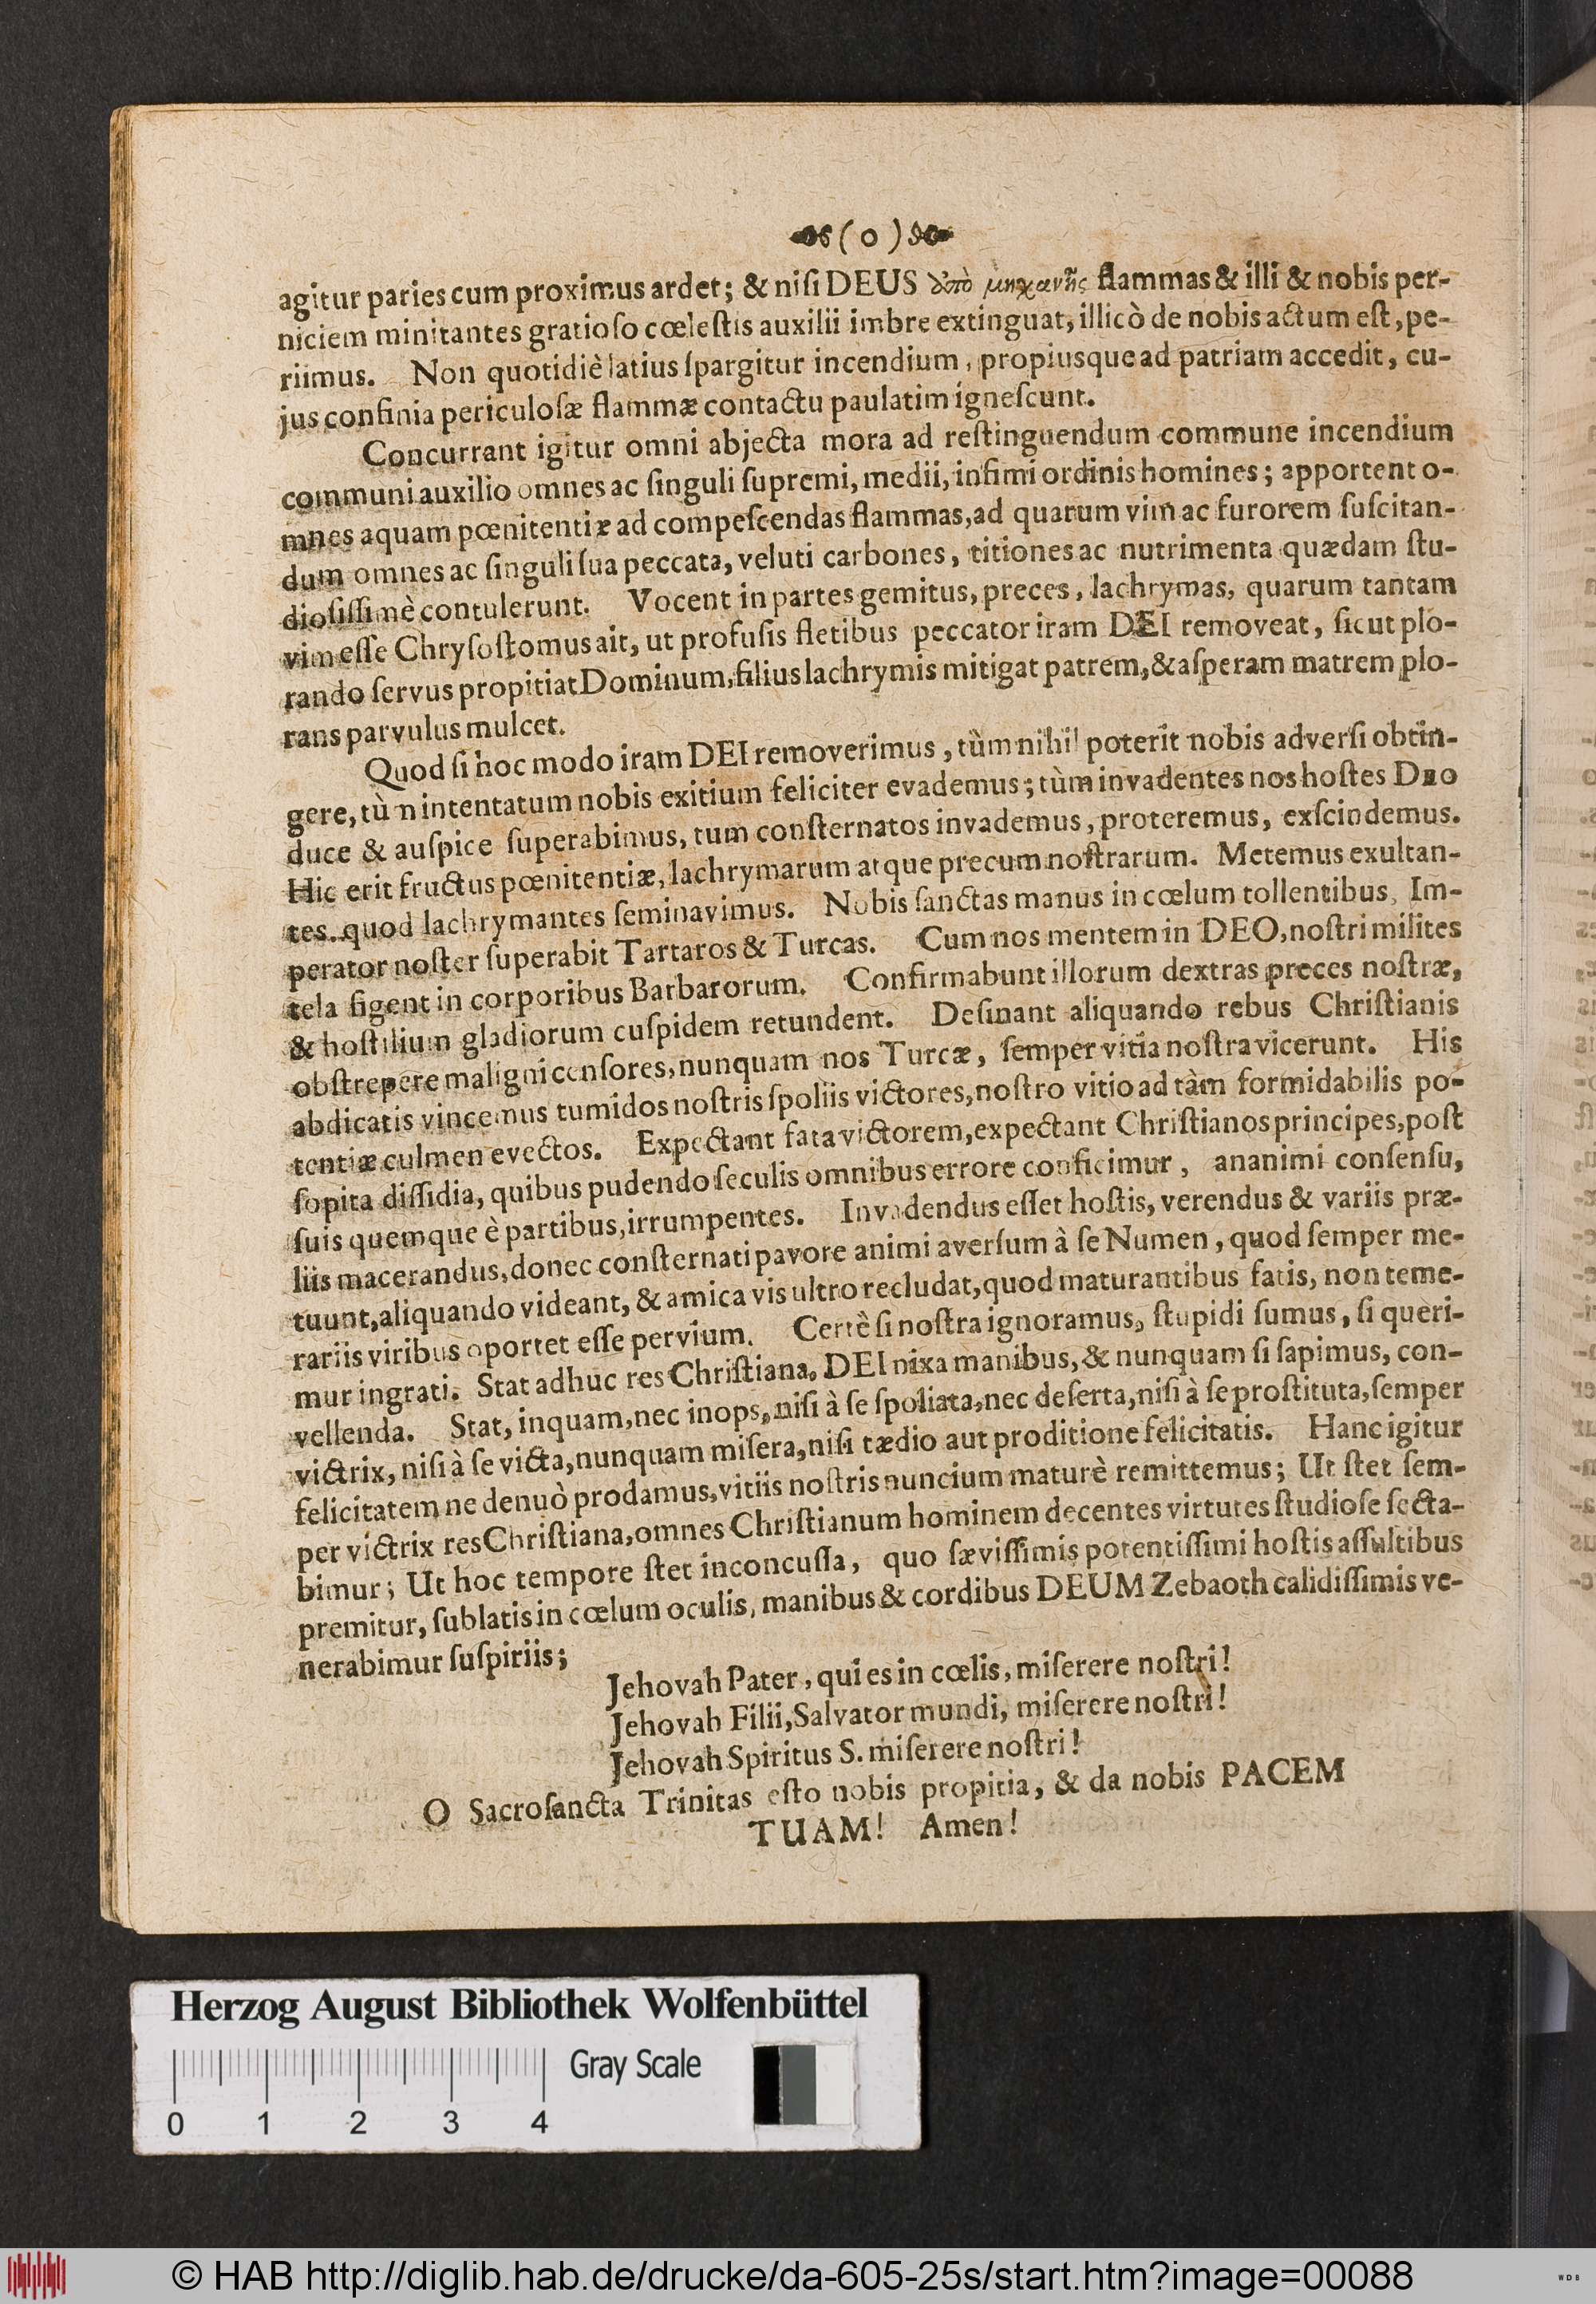 (0)
agitur paries cum proximus ardet; & niſi DEUS ἀπὸ μηχανῆς flammas & illi & nobis per-
niciem minitantes gratioſo cœleſtis auxilii imbre extinguat, illicò de nobis actum eſt, pe-
riimus. Non quotidiè latius ſpargitur incendium, propiusque ad patriam accedit, cu-
jus confinia periculoſæ flammæ contactu paulatim igneſcunt.
Concurrant igitur omni abjecta mora ad reſtinguendum commune incendium
communi auxilio omnes ac ſinguli ſupremi, medii, infimi ordinis homines; apportent o-
mnes aquam pœnitentiæ ad compeſcendas flammas, ad quarum vim ac furorem ſuſcitan-
dum omnes ac ſinguli ſua peccata, veluti carbones, titiones ac nutrimenta quædam ſtu-
dioſiſſimè contulerunt. Vocent in partes gemitus, preces, lachrymas, quarum tantam
vim eſſe Chryſoſtomus ait, ut profuſis fletibus peccator iram DEI removeat, ſicut plo-
rando ſervus propitiat Dominum, filius lachrymis mitigat patrem, & aſperam matrem plo-
rans parvulus mulcet.
Quod ſi hoc modo iram DEI removerimus, tùm nihil poterit nobis adverſi obtin-
gere, tùm intentatum nobis exitium feliciter evademus; tùm invadentes nos hoſtes Deo
duce & auſpice ſuperabimus, tum conſternatos invademus, proteremus, exſcindemus.
Hic erit fructus pœnitentiæ, lachrymarum atque precum noſtrarum. Metemus exultan-
tes, quod lachrymantes ſeminavimus. Nobis ſanctas manus in cœlum tollentibus, Im-
perator noſter ſuperabit Tartaros & Turcas. Cum nos mentem in DEO, noſtri milites
tela figent in corporibus Barbarorum. Confirmabunt illorum dextras preces noſtræ,
& hoſtilium gladiorum cuſpidem retundent. Deſinant aliquando rebus Chriſtianis
obſtrepere maligni cenſores, nunquam nos Turcæ, ſemper vitia noſtra vicerunt. His
abdicatis vincemus tumidos noſtris ſpoliis victores, noſtro vitio ad tàm formidabilis po-
tentiæ culmen evectos. Expectant fata victorem, expectant Chriſtianos principes, poſt
ſopita diſſidia, quibus pudendo ſeculis omnibus errore conficimur, ananimi conſenſu,
ſuis quemque è partibus, irrumpentes. Invadendus eſſet hoſtis, verendus & variis præ-
liis macerandus, donec conſternati pavore animi averſum à ſe Numen, quod ſemper me-
tuunt, aliquando videant, & amica vis ultro recludat, quod maturantibus fatis, non teme-
rariis viribus oportet eſſe pervium. Certè ſi noſtra ignoramus, ſtupidi ſumus, ſi queri-
mur ingrati. Stat adhuc res Chriſtiana, DEI nixa manibus, & nunquam ſi ſapimus, con-
vellenda. Stat, inquam, nec inops, niſi à ſe ſpoliata, nec deſerta, niſi à ſe proſtituta, ſemper
victrix, niſi à ſe victa, nunquam miſera, niſi tædio aut proditione felicitatis. Hanc igitur
felicitatem ne denuò prodamus, vitiis noſtris nuncium maturè remittemus; Ut ſtet ſem-
per victrix res Chriſtiana, omnes Chriſtianum hominem decentes virtutes ſtudioſe ſecta-
bimur; Ut hoc tempore ſtet inconcuſſa, quo ſæviſſimis potentiſſimi hoſtis aſſultibus
premitur, ſublatis in cœlum oculis, manibus & cordibus DEUM Zebaoth calidiſſimis ve-
nerabimur ſuſpiriis;
Jehovah Pater, qui es in cœlis, miſerere noſtri!
Jehovah Filii, Salvator mundi, miſerere noſtri!
Jehovah Spiritus S. miſerere noſtri!
O Sacroſancta Trinitas eſto nobis propitia, & da nobis PACEM
TUAM! Amen!
Herzog August Bibliothek Wolfenbüttel
Gray Scale
0 1 2 3 4
© HAB http://diglib.hab.de/drucke/da-605-25s/start.htm?image=00088
WDB